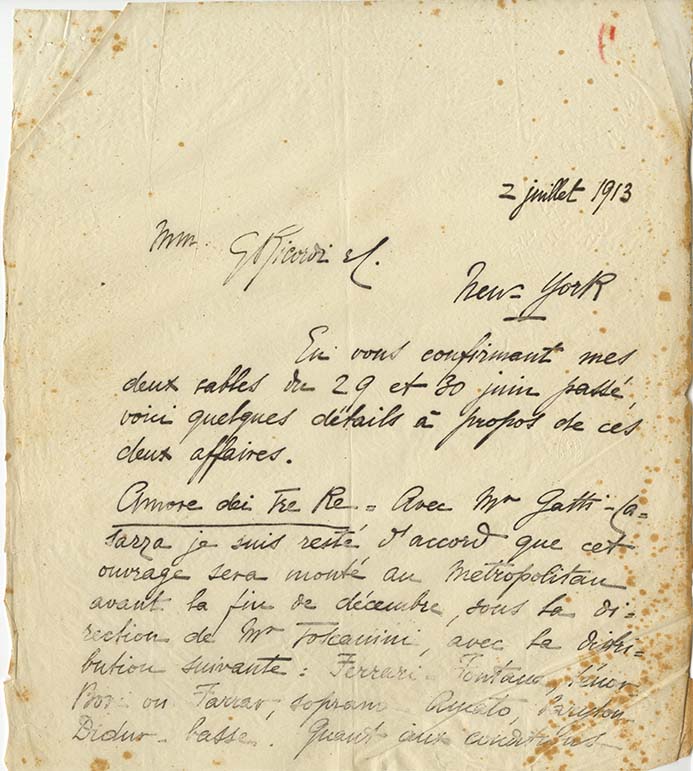 2 juillet 1913
Mm. G Ricordi & C.
New-York
En vous confirmant mes
deux cables du 29 et 30 juin passé,
voici quelques détails à propos de ces
deux affaires.
Amore dei Tre Re = Avec Mr Gatti-Ca=
sazza je suis resté d'accord que cet
ouvrage sera monté au Metropolitan
avant la fin de décembre, sous la di=
rection de Mr Toscanini, avec la distri=
bution suivante : Ferrari-Fontana, ténor-
Bori ou Farrar, soprano- Amato, baryton
Didur- basse. Quant aux conditions